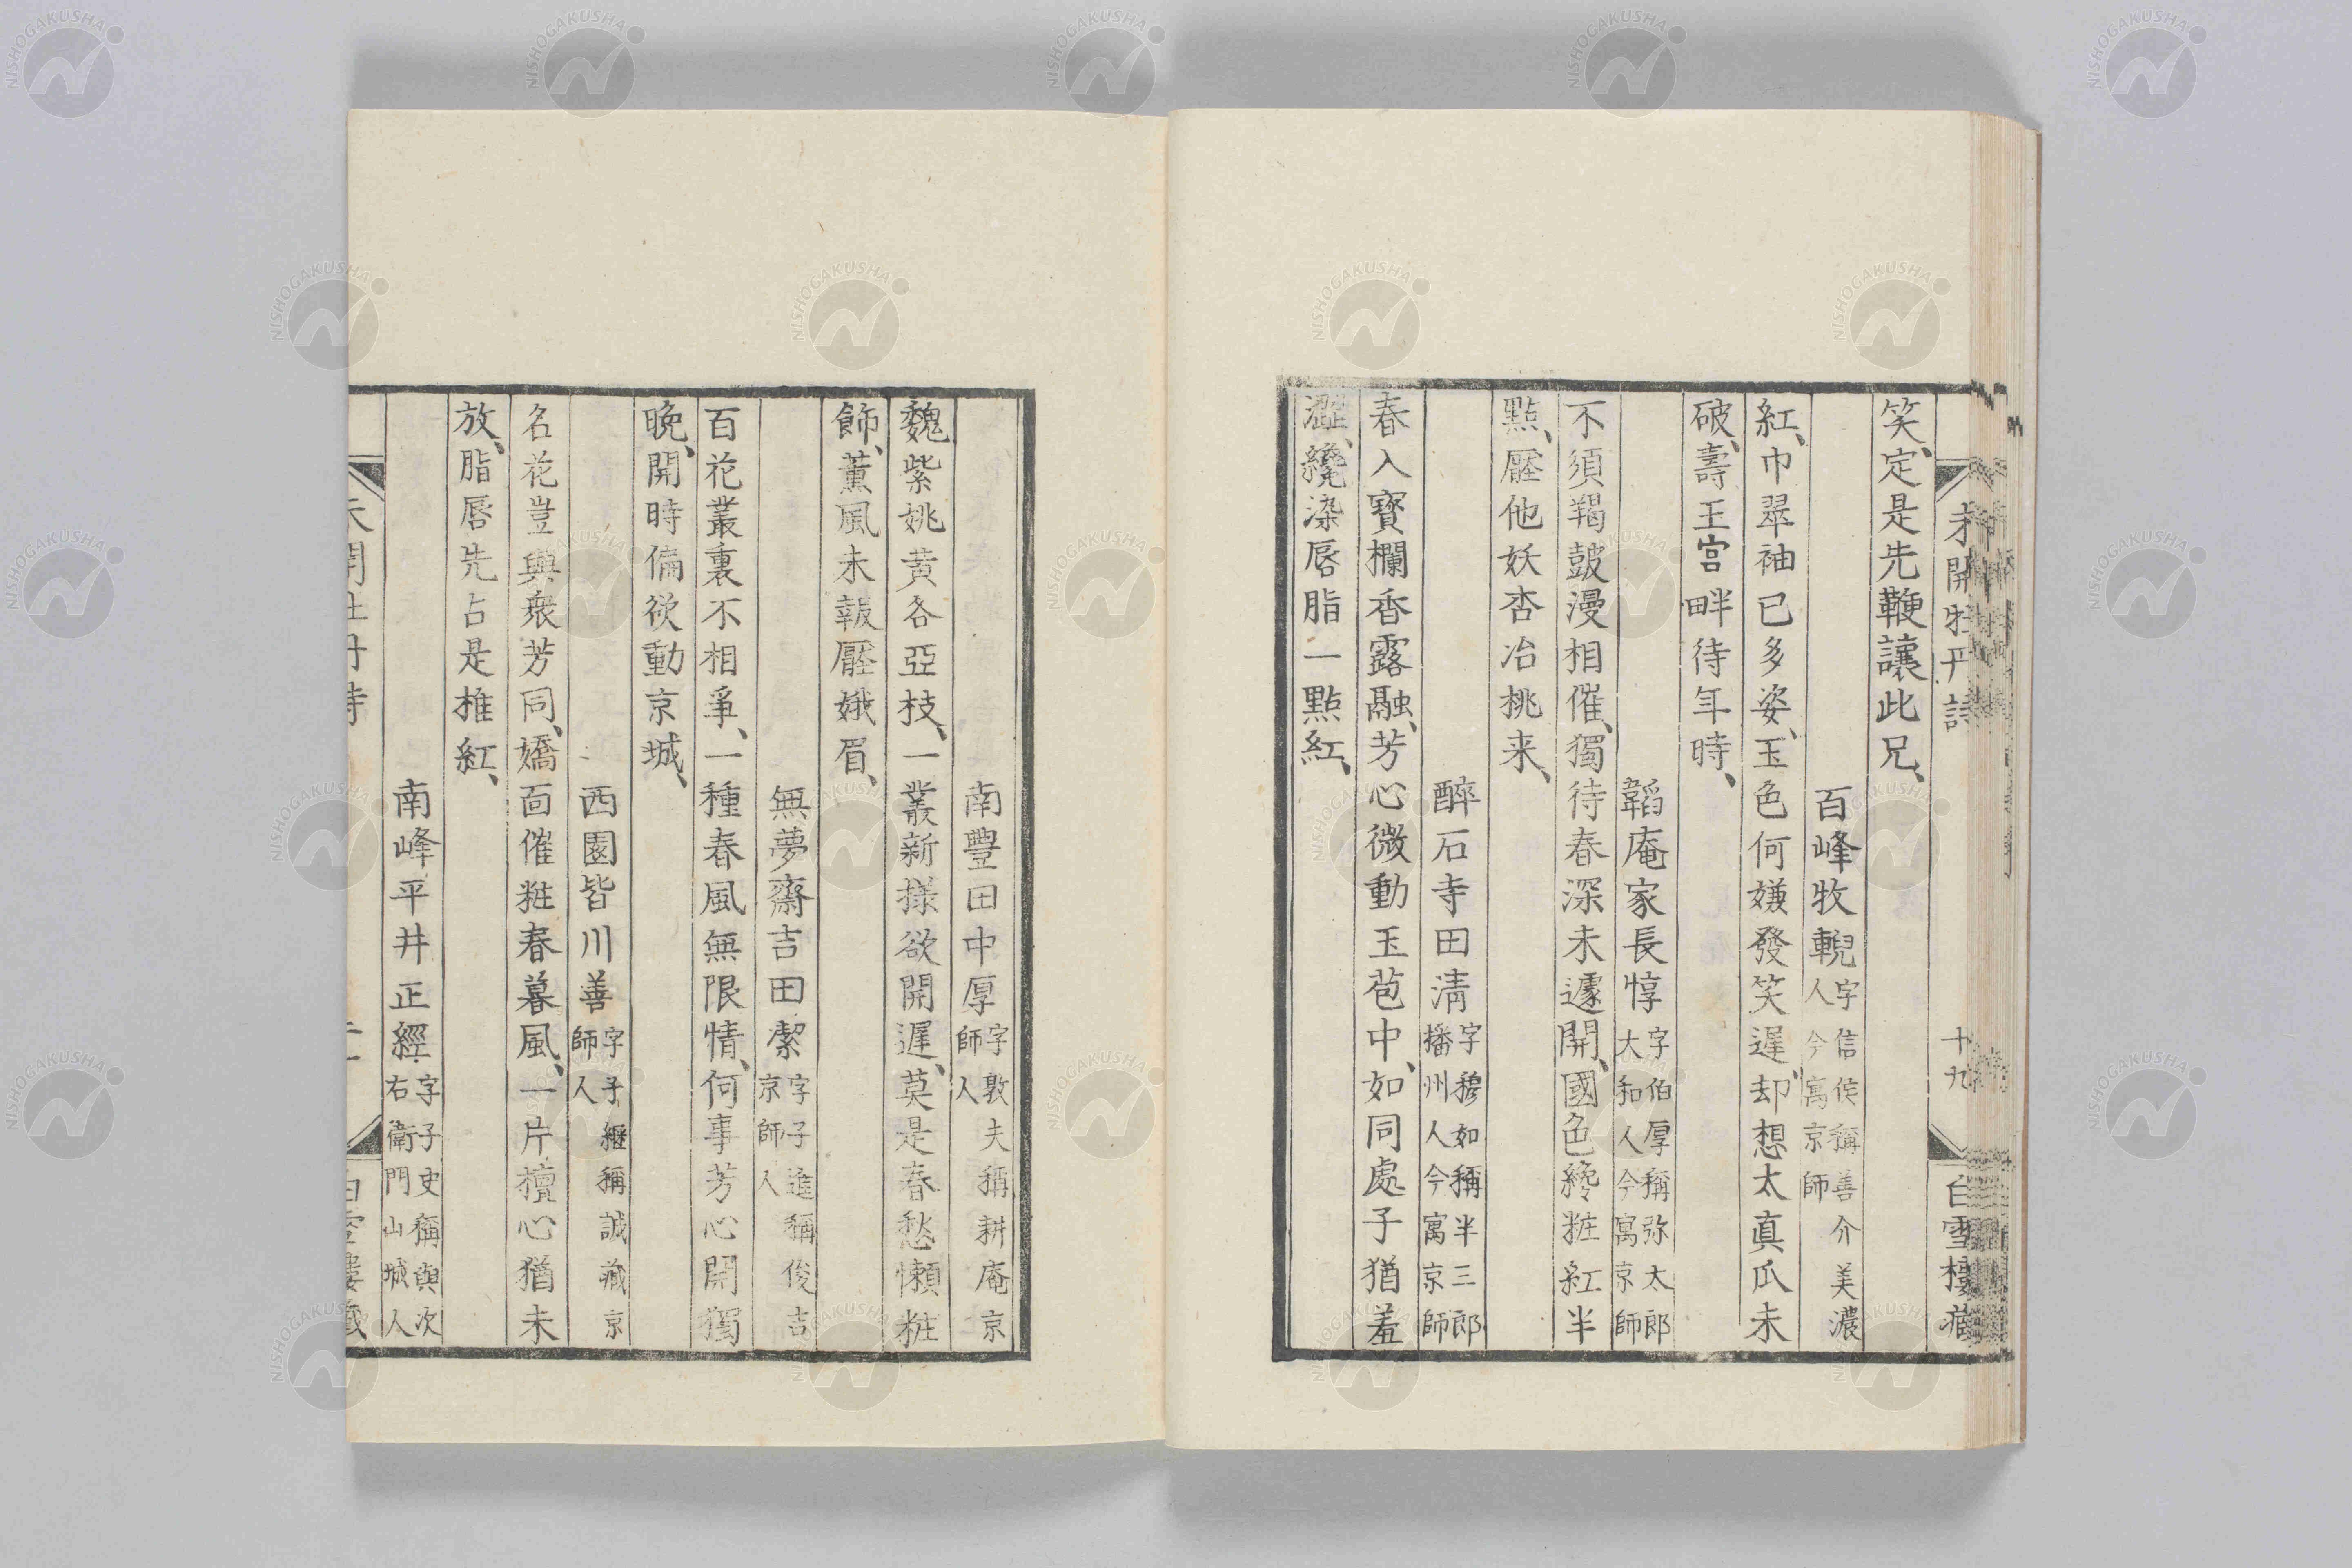 未開牡丹詩 十九 白雪樓藏
笑、定是先鞭讓此兄、
百峰牧輗字信侯稱善介美濃人今寓京師
紅、巾翠袖已多姿、玉色何嫌發笑遲、却想太真瓜未
破、壽王宮畔待年時、
韜庵家長惇字伯厚稱弥太郎大和人今寓京師
不須羯鼓漫相催、獨待春深未遽開、國色纔粧紅半
點、壓他妖杏冶桃来、
醉石寺田淸字穆如稱半三郎播州人今寓京師
春入寶欄香露融、芳心微動玉苞中、如同處子猶羞
澀、纔染唇脂一點紅、
南豐田中厚字敦夫稱耕庵京師人
魏紫姚黃各亞枝、一叢新様欲開遲、莫是春愁懶粧
飾、薰風未報壓娥眉、
無夢齋吉田潔字子進稱俊吉京師人
百花叢裏不相爭、一種春風無限情、何事芳心開獨
晚、開時偏欲動京城、
西園皆川善字子繼稱誠藏京師人
名花豈與衆芳同、嬌面催粧春暮風、一片檀心猶未
放、脂唇先占是推紅、
南峰平井正經字子史稱與次右衛門山城人
未開牡丹詩 白雪樓藏